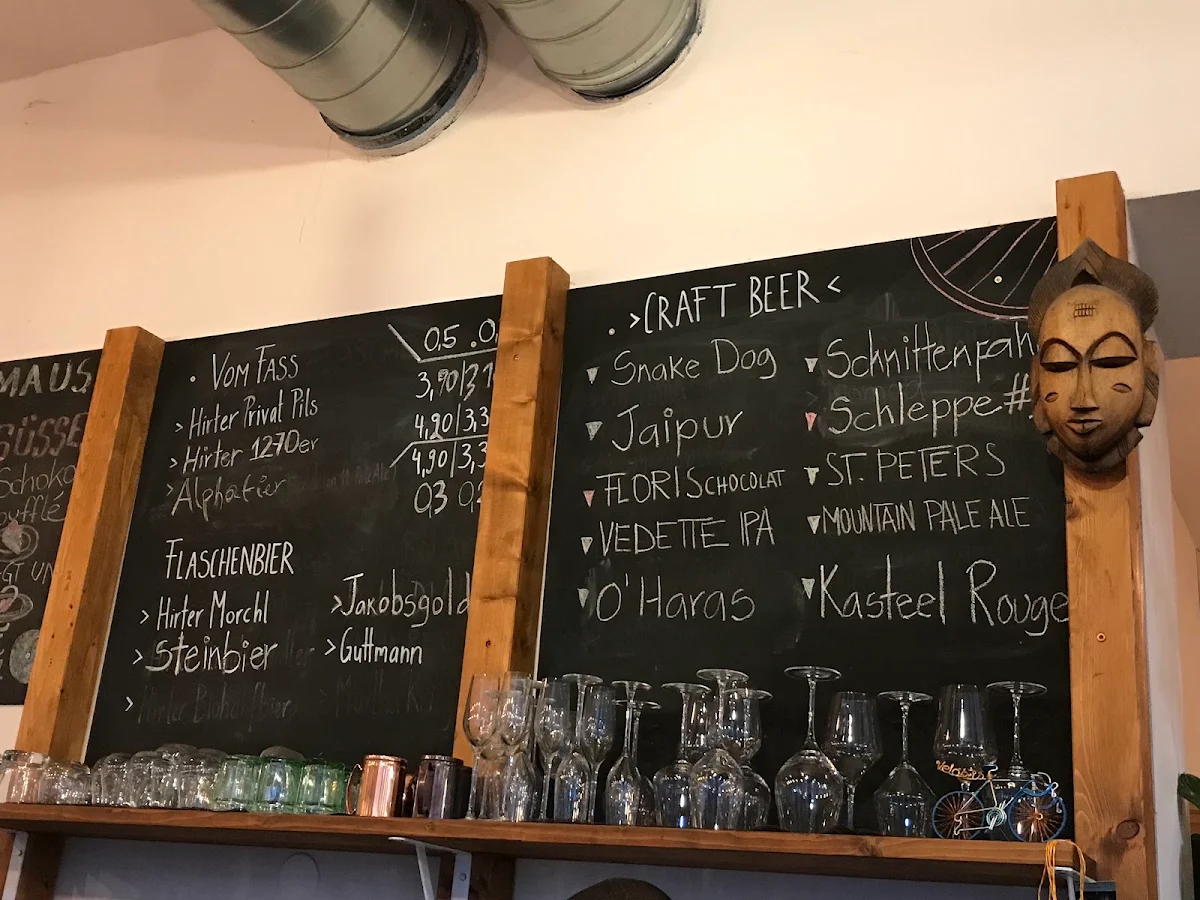 MAUS
SÜSSE
Schoko
oufflé
GT UN
• VOM FASS
0,5 .0,
> Hirter Privat Pils 3,90/3,1
> Hirter 1270er 4,90/3,3
> Alphatier 4,90/3,3
0,3
FLASCHENBIER
> Hirter Morchl
> Steinbier
> Hirter Biohanfbier
> Jakobsgold
> Guttmann
. >CRAFT BEER<
Snake Dog
Jaipur
FLORIS CHOCOLAT
VEDETTE IPA
O'Haras
Schnittenpah
Schleppe #
ST. PETERS
MOUNTAIN PALE ALE
Kasteel Rouge